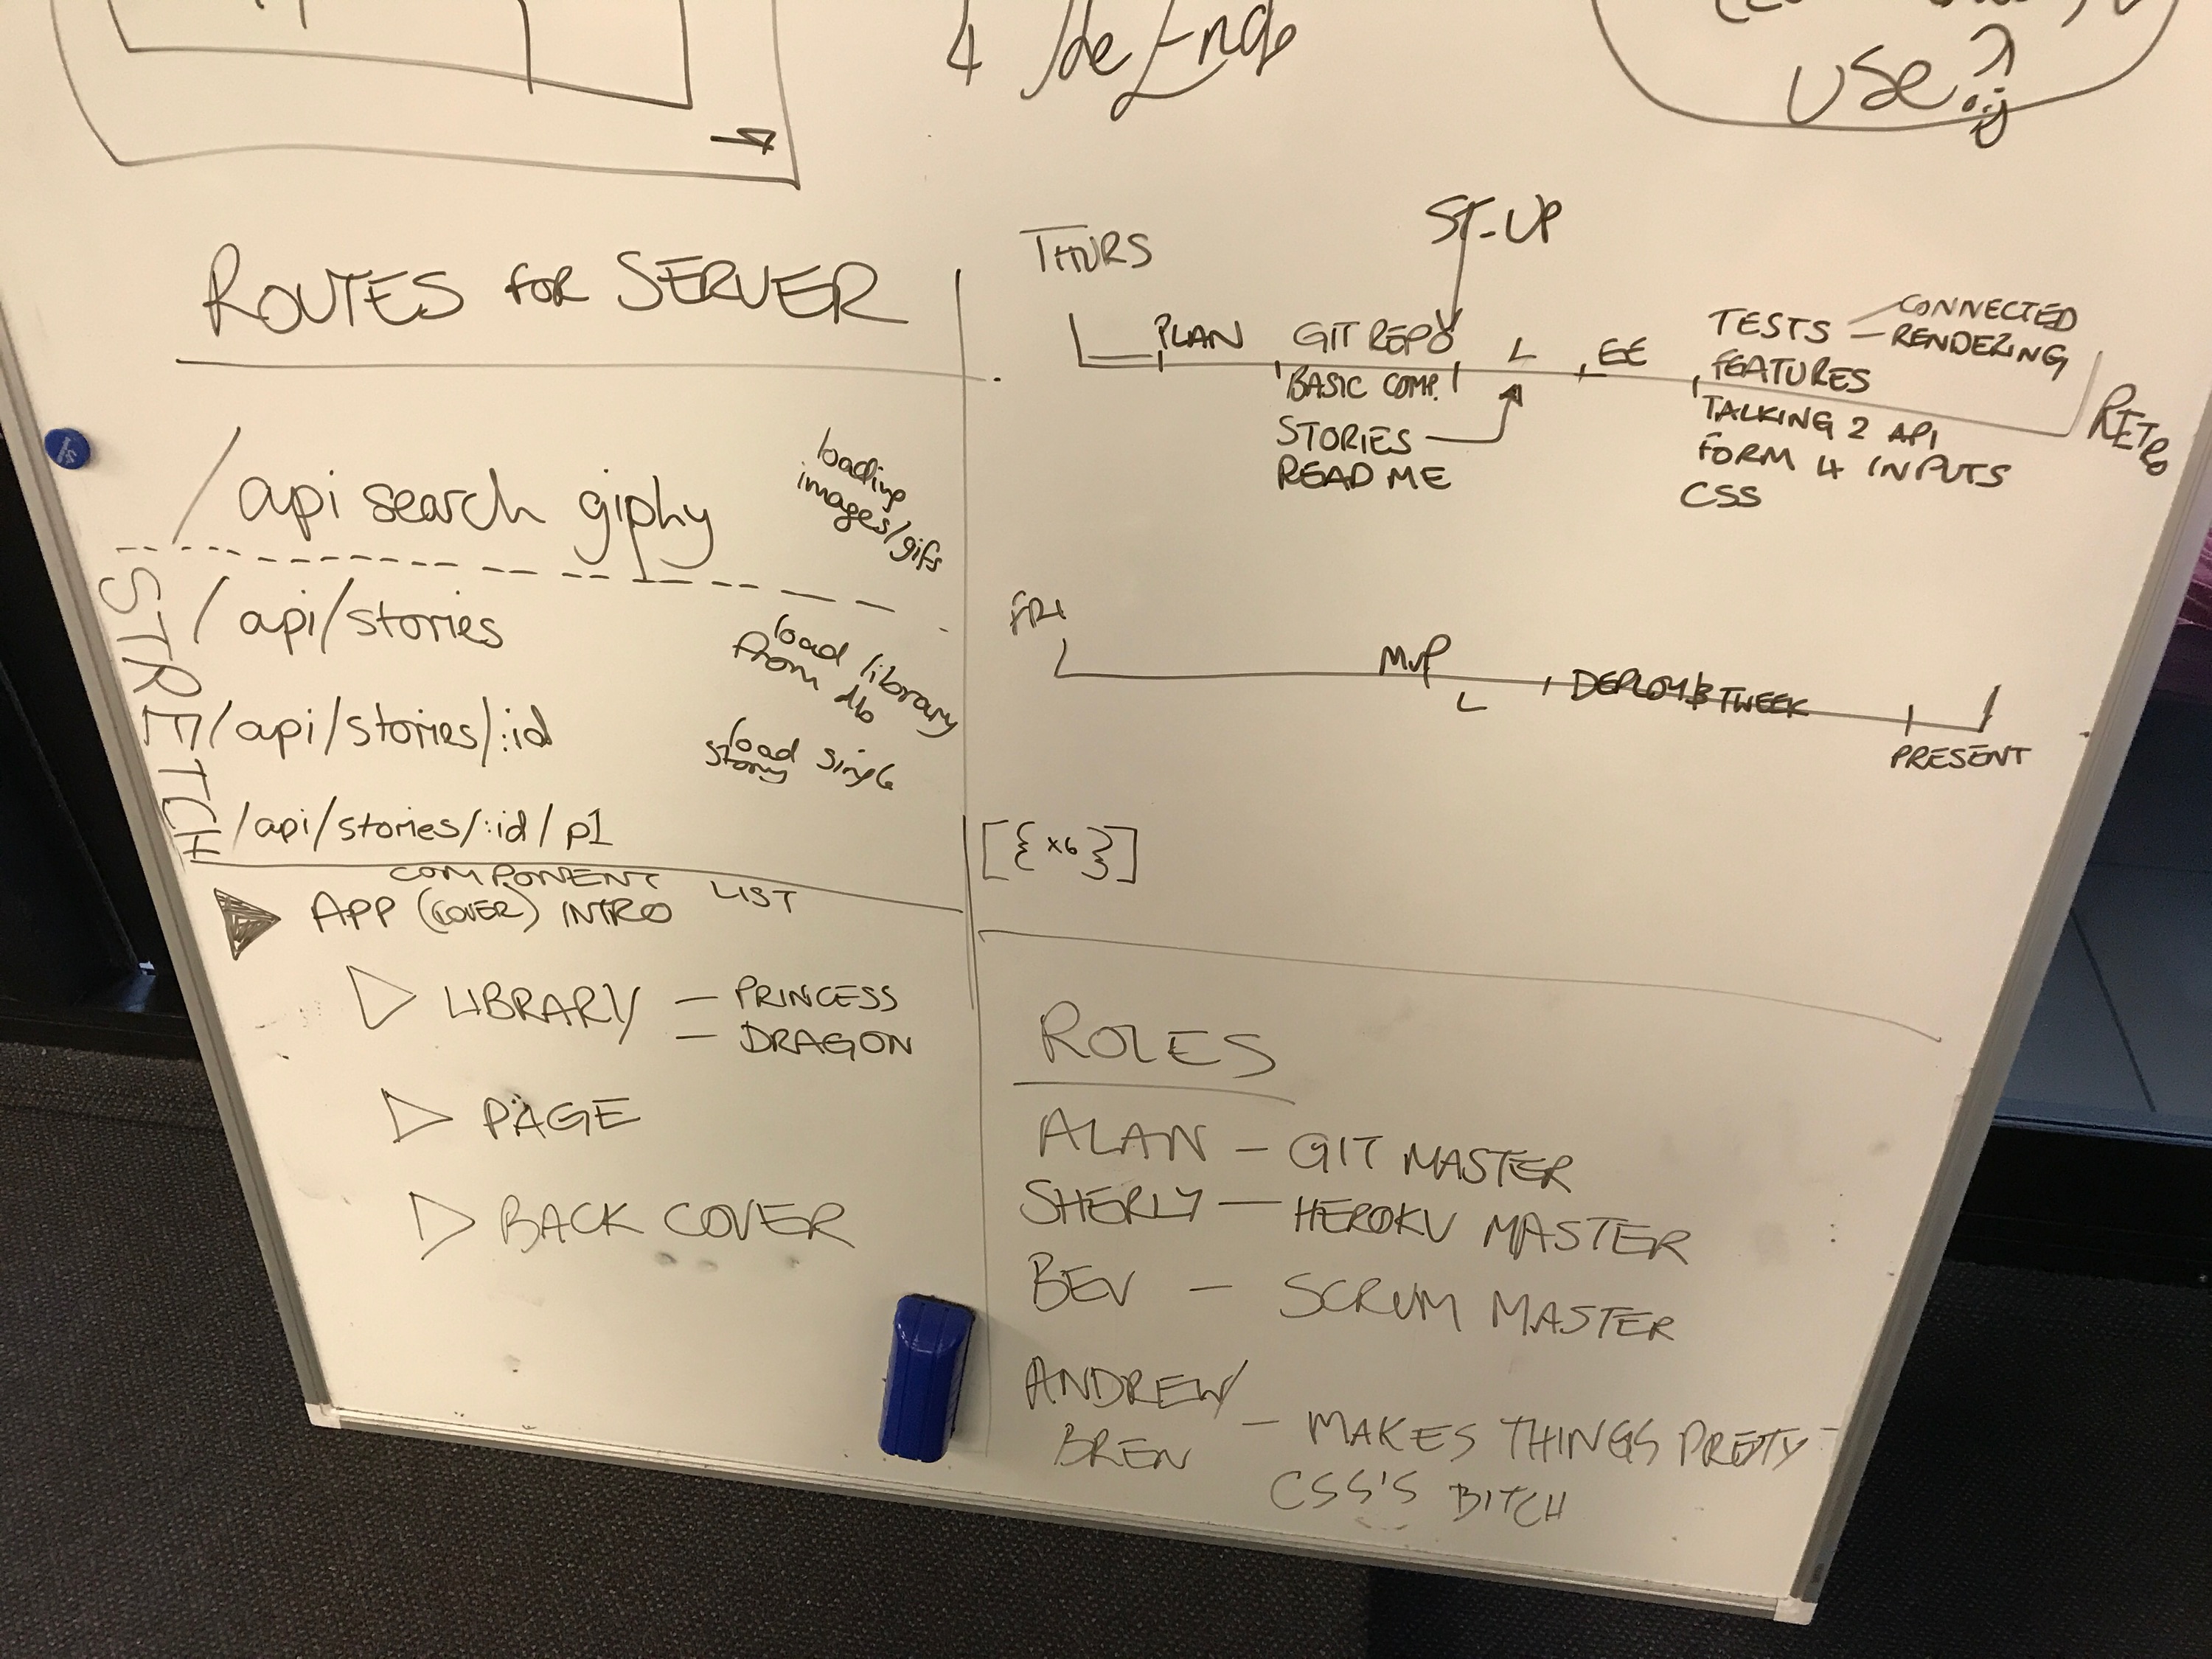 4 the End
use?
ROUTES FOR SERVER
/api search giphy
loading
images/gifs
STRETCH
/api/stories
load library
from db
/api/stories/:id
load single
story
/api/stories/:id/p1
COMPONENT LIST
APP (COVER) INTRO
LIBRARY – PRINCESS
– DRAGON
PAGE
BACK COVER
THURS
ST-UP
PLAN
GIT REPO
BASIC COMP.
STORIES
READ ME
L
EE
TESTS – CONNECTED
– RENDERING
FEATURES
TALKING 2 API
FORM 4 INPUTS
CSS
RETRO
FRI
MVP
L
DEPLOY & TWEEK
PRESENT
[{x6}]
ROLES
ALAN – GIT MASTER
SHERLY – HEROKU MASTER
BEV – SCRUM MASTER
ANDREW/
BREN – MAKES THINGS PRETTY
CSS'S BITCH